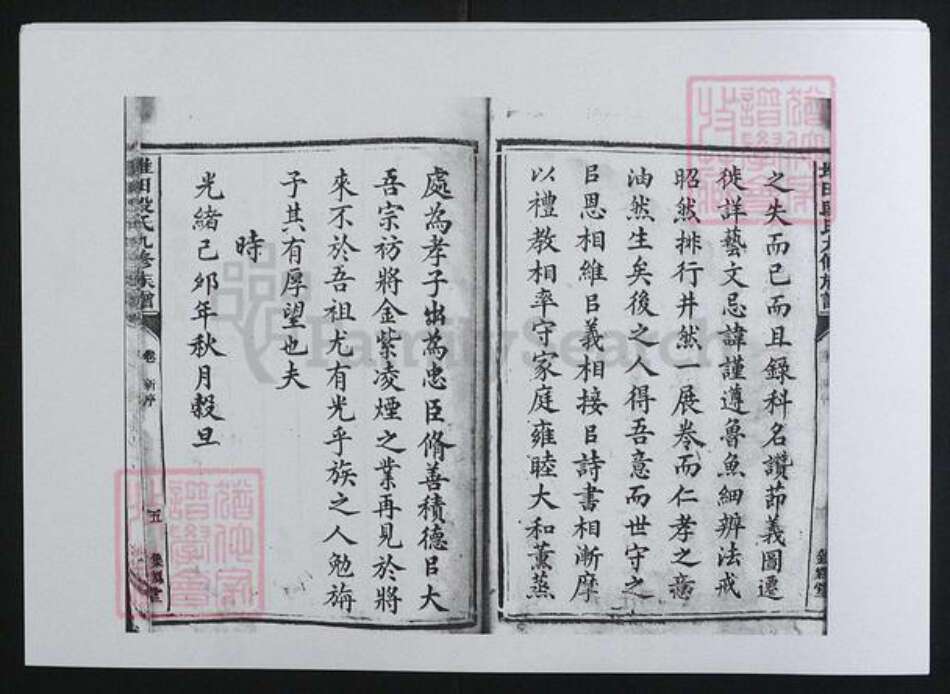 之失而已而且錄科名讚節義圖遷
徙詳藝文忌諱謹遵魯魚細辨法戒
昭然排行井然一展卷而仁孝之意
油然生矣後之人得吾意而世守之
㠯恩相維㠯義相接㠯詩書相漸摩
以禮教相率守家庭雍睦大和薰蒸
處為孝子出為忠臣脩善積德㠯大
吾宗祊將金紫凌煙之業再見於將
來不於吾祖尤有光乎族之人勉旃
子其有厚望也夫
時
光緒己卯年秋月穀旦
田段氏九修族譜
卷
新序
五
FamilySearch